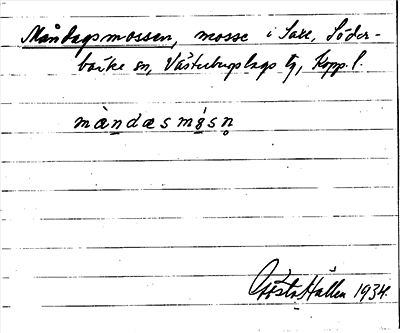 Måndagsmossen, mosse i Saxe, Söder-
barke sn, Västerbergslags tg, Kopp. l.
màndæsmósn̥
Gösta Hallén 1934.